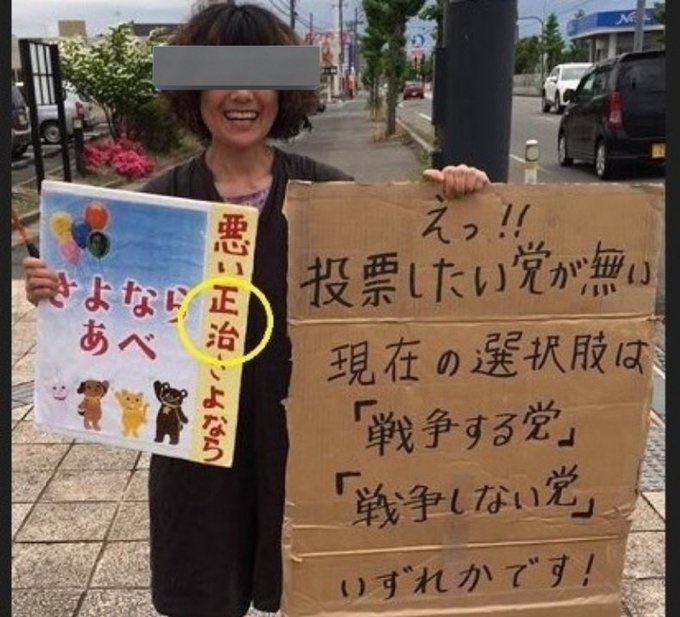 さよなら
あべ
悪い正治さよなら
えっ!!
投票したい党が無い
現在の選択肢は
「戦争する党」
「戦争しない党」
いずれかです!